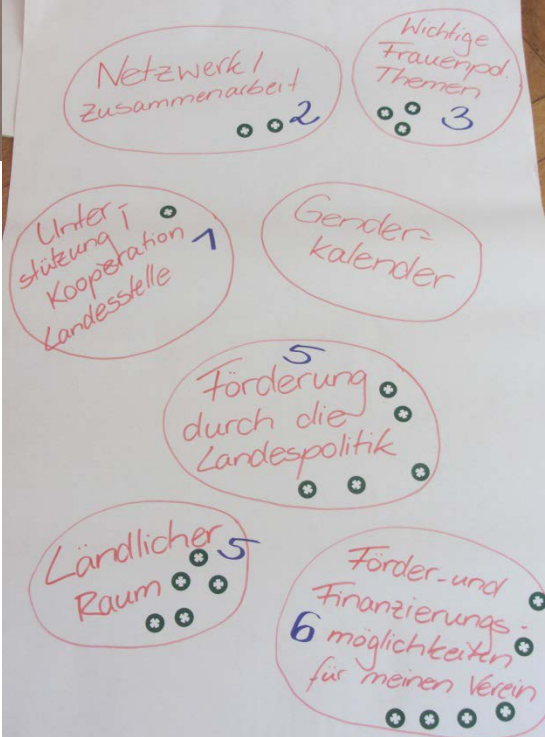 Netzwerk/
Zusammenarbeit
2
Wichtige
Frauenpol.
Themen
3
Unter-
stützung /
Kooperation
Landesstelle
1
Gender-
kalender
5
Förderung
durch die
Landespolitik
Ländlicher
Raum
5
Förder- und
Finanzierungs-
6 möglichkeiten
für meinen Verein